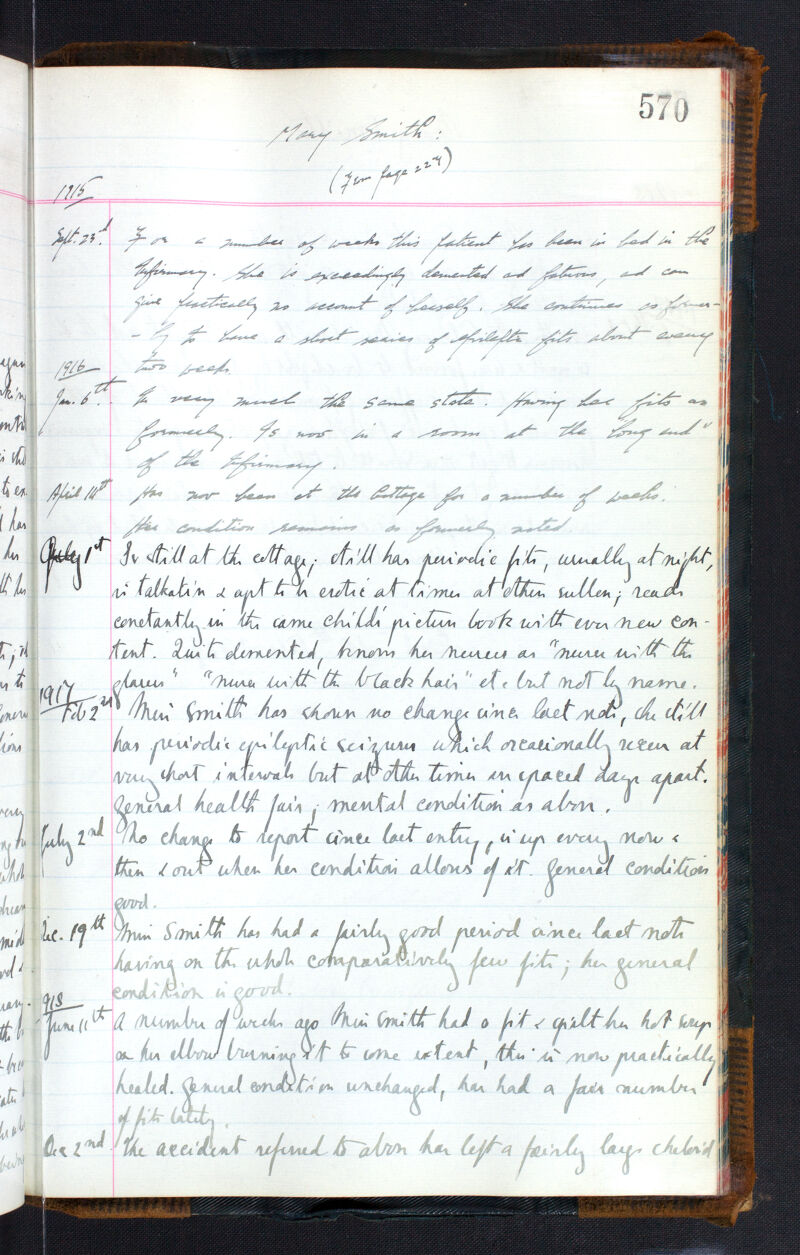 570
Mary Smith:
(From page 224)
1915
Sept. 23rd. For a number of weeks this patient has been in bed in the
Infirmary. She is exceedingly demented and fatuous, and can
give practically no account of herself. She continues as former-
- ly to have a short series of epileptic fits about every
two weeks
1916
Jan. 6th. In very much the same state. Having her fits as
formerly. Is now in a room at the "long end"
of the Infirmary.
April 14th Has now been at the Cottage for a number of weeks.
Her condition remains as formerly noted.
July 1st Is still at the cottage; still has periodic fits, usually at night,
is talkative & apt to be erotic at times at others sullen; reads
constantly in the same child's picture book with ever new con-
tent. Quite demented, knows her nurses as "nurse with the
glasses" "nurse with the black hair" etc but not by name.
1917
Feb 2nd Miss Smith has shown no change since last note, she still
has periodic epileptic seizures which occasionally recur at
very short intervals but at other times are spaced days apart.
General health fair; mental condition as above.
July 2nd No change to report since last entry, is up every now &
then & out when her condition allows of it. General condition
good.
Dec. 19th Miss Smith has had a fairly good period since last note
having on the whole comparatively few fits; her general
condition is good.
918
June 11th A number of weeks ago Miss Smith had a fit & spilt her hot soup
on her elbow burning it to some extent, this is now practically
healed. General condition unchanged, has had a fair number
of fits lately.
Dec 2nd The accident referred to above has left a fairly large cheloid